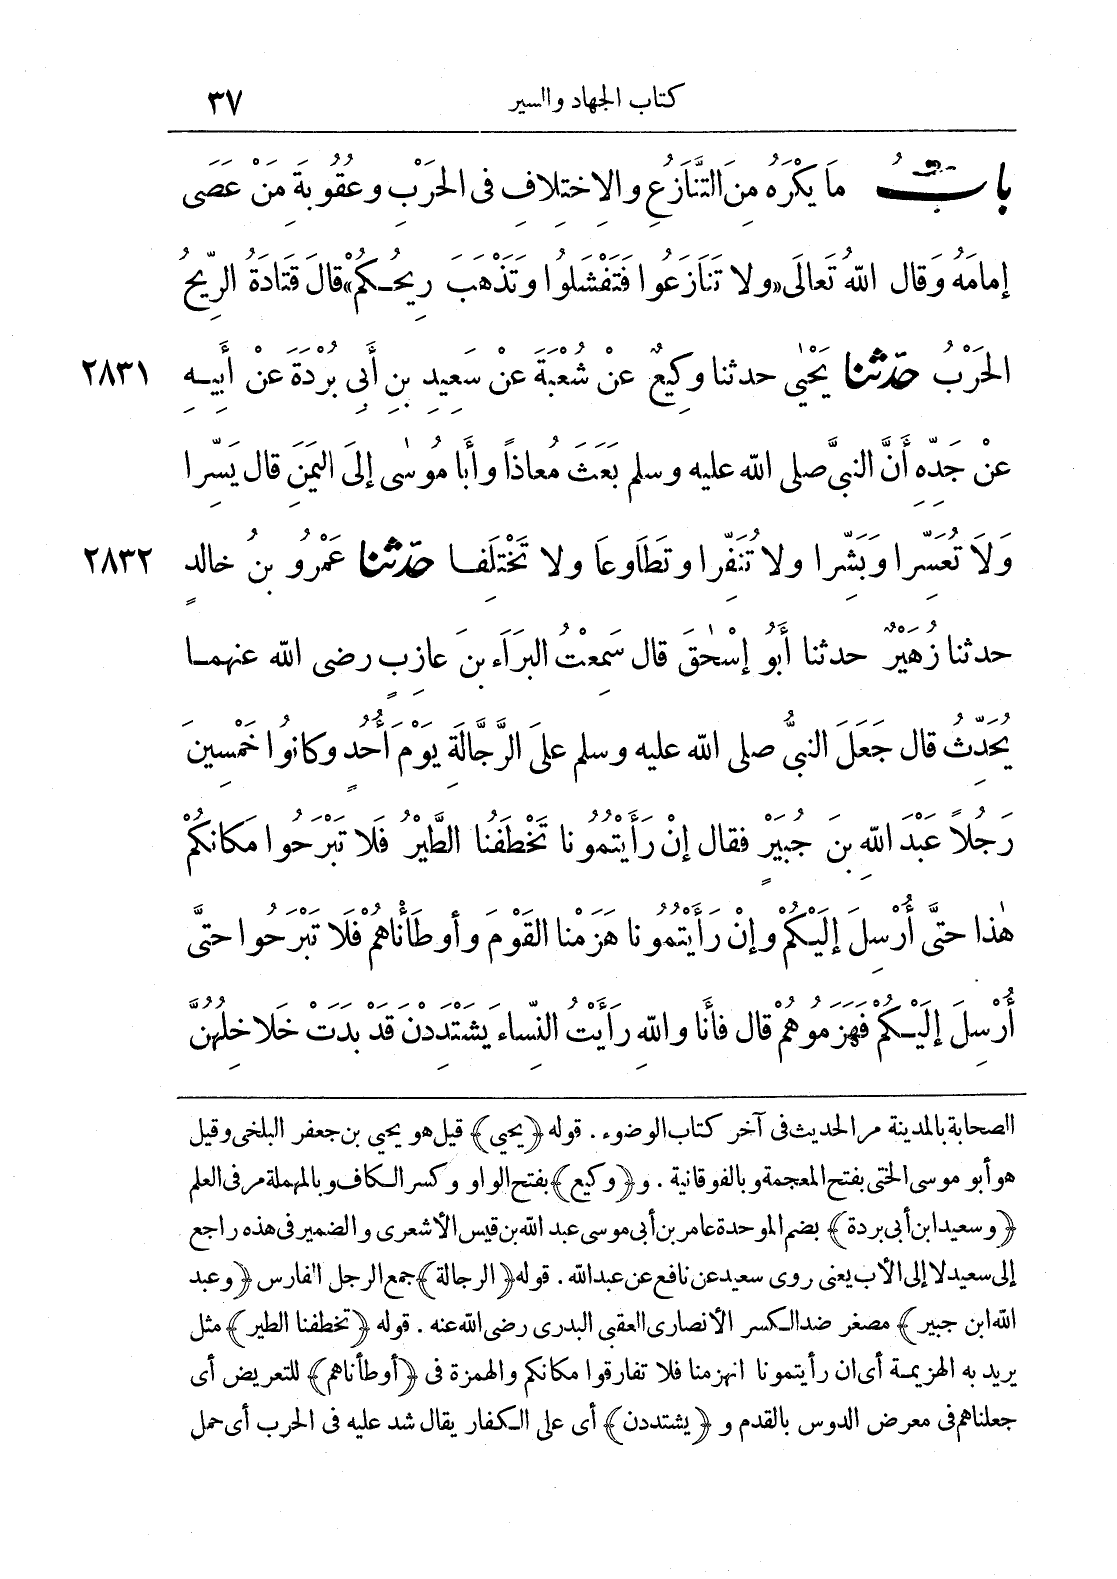 كتاب الجهاد والسير ٣٧
باب مَا يَكْرَهُ مِنَ التَّنَازُعِ والِاخْتِلافِ فى الحَرْبِ وعُقُوبَةِ مَنْ عَصَى
إمامَهُ وَقال اللهُ تَعالَى «ولا تَنَازَعُوا فَتَفْشَلُوا وتَذْهَبَ رِيحُكُمْ» قالَ قَتَادَةُ الرِّيحُ
الحَرْبُ حدّثنا يَحْيى حدثنا وكِيعٌ عنْ شُعْبَةَ عنْ سَعِيدِ بنِ أَبِى بُرْدَةَ عنْ أَبِيهِ ٢٨٣١
عنْ جَدِّهِ أنَّ النبىَّ صلى الله عليه وسلم بَعَثَ مُعاذاً وأَبا مُوسٰى إلَى اليَمَنِ قال يَسِّرا
وَلَا تُعَسِّرا وَبَشِّرا ولا تُنَفِّرا وتَطَاوعَا ولا تَخْتَلِفا حدّثنا عَمْرُو بنُ خالدٍ ٢٨٣٢
حدثنا زُهَيْرٌ حدثنا أَبُو إسْحٰقَ قال سَمِعْتُ البَرَاءَ بنَ عازِبٍ رضى الله عنهما
يُحَدِّثُ قال جَعَلَ النبىُّ صلى الله عليه وسلم علىَ الرَّجَّالَةِ يَوْمَ أُحُدٍ وكانُوا خَمْسِينَ
رَجُلاً عَبْدَ اللهِ بنَ جُبَيْرٍ فقال إنْ رَأَيْتُمُونا تَخْطَفُنَا الطَّيْرُ فَلا تَبْرَحُوا مَكانَكُمْ
هٰذا حتىَّ أُرْسِلَ إلَيْكُمْ وإنْ رَأَيْتُمُونا هَزَمْنا القَوْمَ وأوطَأْناهُمْ فَلَا تَبْرَحُوا حتىَّ
أُرْسِلَ إلَيْكُمْ فَهَزَمُوهُمْ قال فأَنا واللهِ رَأَيْتُ النِّساءَ يَشْتَدِدْنَ قَدْ بَدَتْ خَلاخِلُهُنَّ
الصحابة بالمدينة مر الحديث فى آخر كتاب الوضوء . قوله ﴿يحيي﴾ قيل هو يحيي بن جعفر البلخى وقيل
هو أبو موسى الختى بفتح المعجمة وبالفوقانية . و﴿وكيع﴾ بفتح الواو وكسر الكاف وبالمهملة مر فى العلم
﴿وسعيد ابن أبى بردة﴾ بضم الموحدة عامر بن أبى موسى عبد الله بن قيس الأشعرى والضمير فى هذه راجع
إلى سعيد لا إلى الأب يعنى روى سعيد عن نافع عن عبدالله . قوله ﴿الرجالة﴾ جمع الرجل الفارس ﴿وعبد
الله ابن جبير﴾ مصغر ضد الكسر الأنصارى العقبى البدرى رضى الله عنه . قوله ﴿تخطفنا الطير﴾ مثل
يريد به الهزيمة أى ان رأيتمونا انهزمنا فلا تفارقوا مكانكم والهمزة فى ﴿أوطأناهم﴾ للتعريض أى
جعلناهم فى معرض الدوس بالقدم و ﴿يشتددن﴾ أى على الكفار يقال شد عليه فى الحرب أى حمل